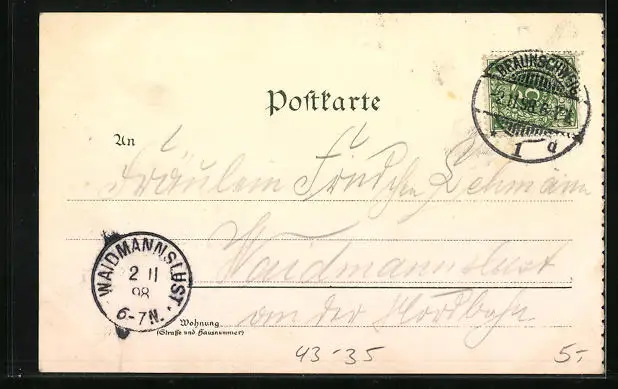 Postkarte
BRAUNSCHWEIG
1 d
An
Fräulein Friedchen Lehmann
Waidmannslust
an der Nordbahn
WAIDMANNSLUST
2 11
98
6-7N.
Wohnung
(Straße und Hausnummer)
43-35
5.-